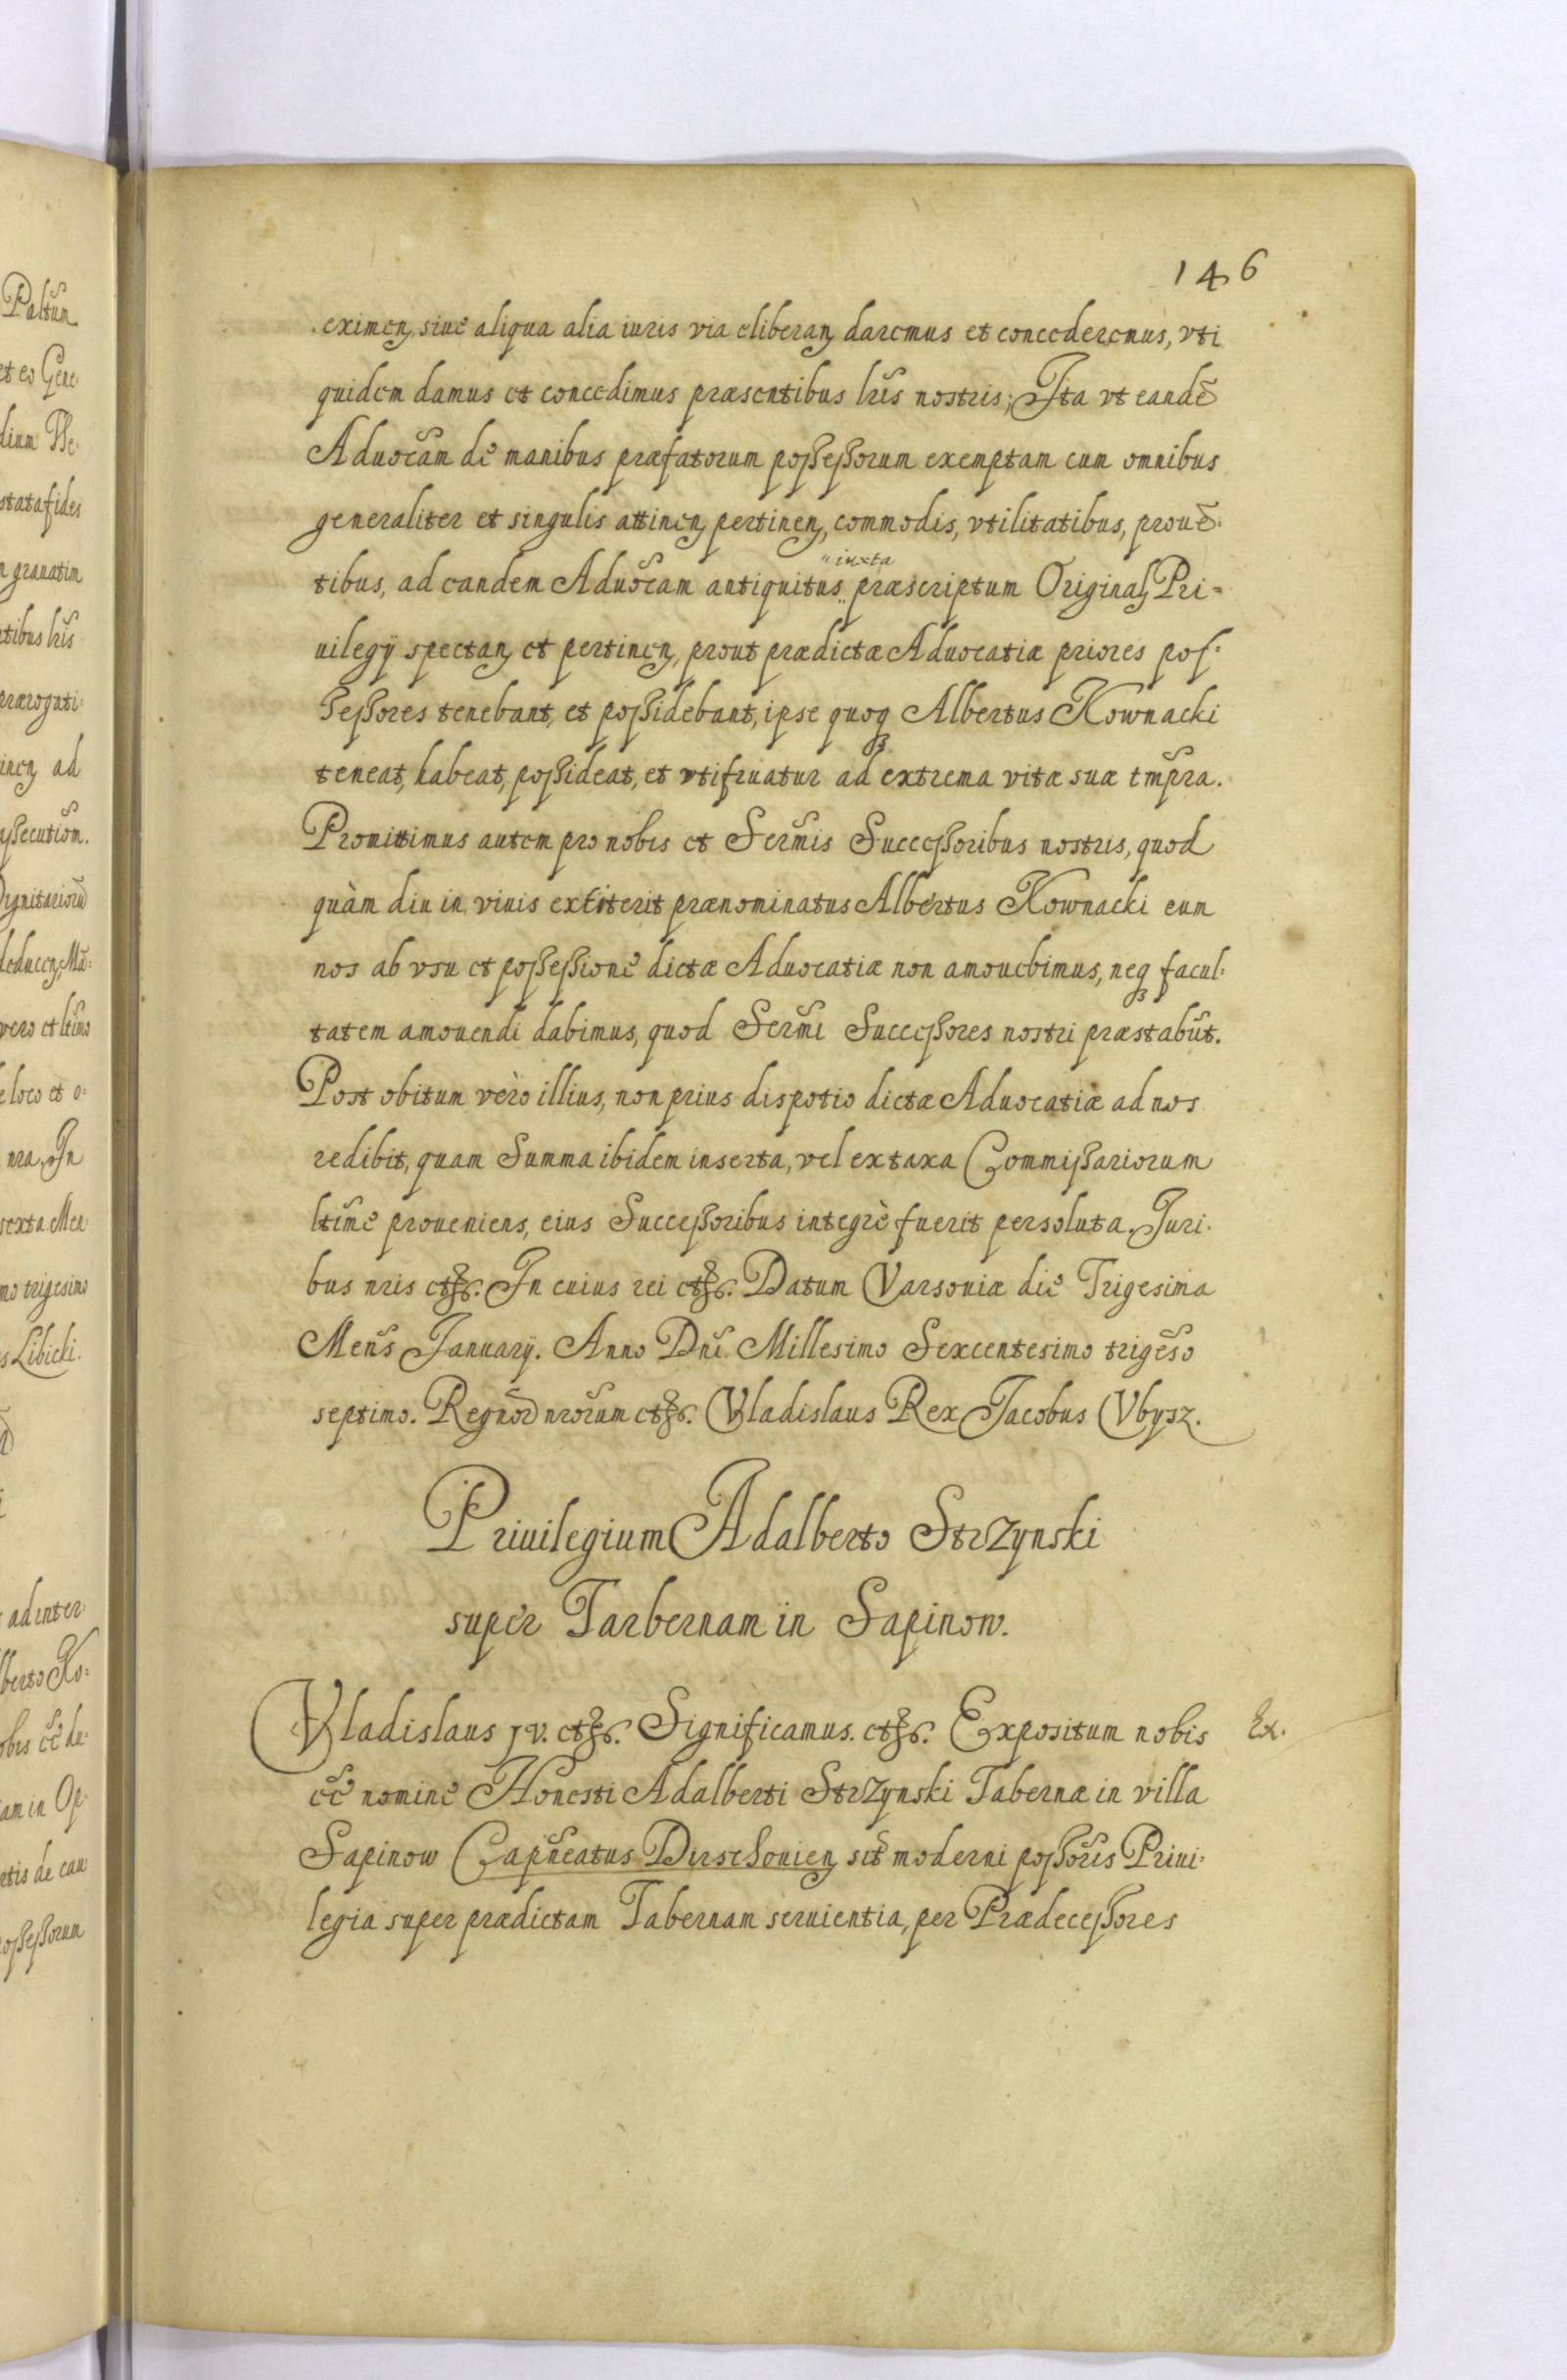 146
eximen, siue aliqua alia iuris via eliberan, daremus et concederemus, vti
quidem damus et concedimus præsentibus lris nostris; Ita vt eandē
Aduocãm de manibus præfatorum possessorum exemptam cum omnibus
generaliter et singulis attinen, pertinen, commodis, vtilitatibus, prouē:
iuxta
tibus, ad eandem Aduocãm antiquitus præscriptum Original, Pri=
uilegij spectan, et pertinen, prout prædictæ Aduocatiæ priores pos:
sessores tenebant, et possidebant, ipse quoqȝ Albertus Kownacki
teneat, habeat, possideat, et vtifruatur ad extrema vitæ suæ tmpra.
Promittimus autem pro nobis et Sermis Successoribus nostris, quod
quàm diu in viuis extiterit prænominatus Albertus Kownacki eum
nos ab vsu et possessione dictæ Aduocatiæ non amouebimus, neqȝ facul:
tatem amouendi dabimus, quod Sermi Successores nostri præstabũt.
Post obitum vèro illius, non prius dispotio dictæ Aduocatiæ ad nos
redibit, quam Summa ibidem inserta, vel ex taxa Commissariorum
ltime proueniens, eius Successoribus integrè fuerit persoluta. Juri:
bus nris etc. In cuius rei etc. Datum Varsouiæ die Trigesima
Mens January. Anno Dni Millesimo Sexcentesimo trigeso
septimo. Regnor nrorum etc. Vladislaus Rex Jacobus Vbysz.
Priuilegium Adalberto Strzynski
super Tarbernam in Sapinow.
Vladislaus IV. etc. Significamus. etc. Expositum nobis Ex.
ee nomine Honesti Adalberti Strzynski Tabernæ in villa
Sapinow Capneatus Dirschouien, sit moderni possoris Priui:
legia super prædictam Tabernam seruientia, per Prædecessores